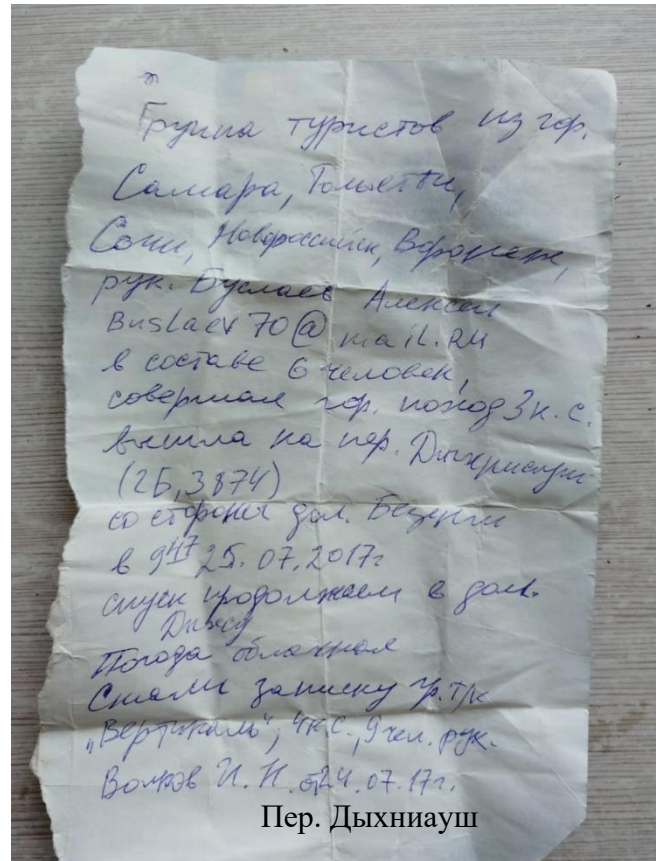 Группа туристов из гор.
Самара, Тольятти,
Сочи, Новороссийск, Воронеж,
рук. Буслаев Алексей
Buslaev70@mail.RU
в составе 6 человек,
совершая гор. поход 3 к.с.
вышла на пер. Дыхниауш
(2Б, 3874)
со стороны дол. Безенги
в 9 47 25.07.2017г
спуск продолжаем в дол.
Дыхсу
Погода облачная
Сняли записку гр. т/к
„Вертикаль", 4 к.с., 9 чел. рук.
Волков И. Н. от 24.07.17г.
Пер. Дыхниауш